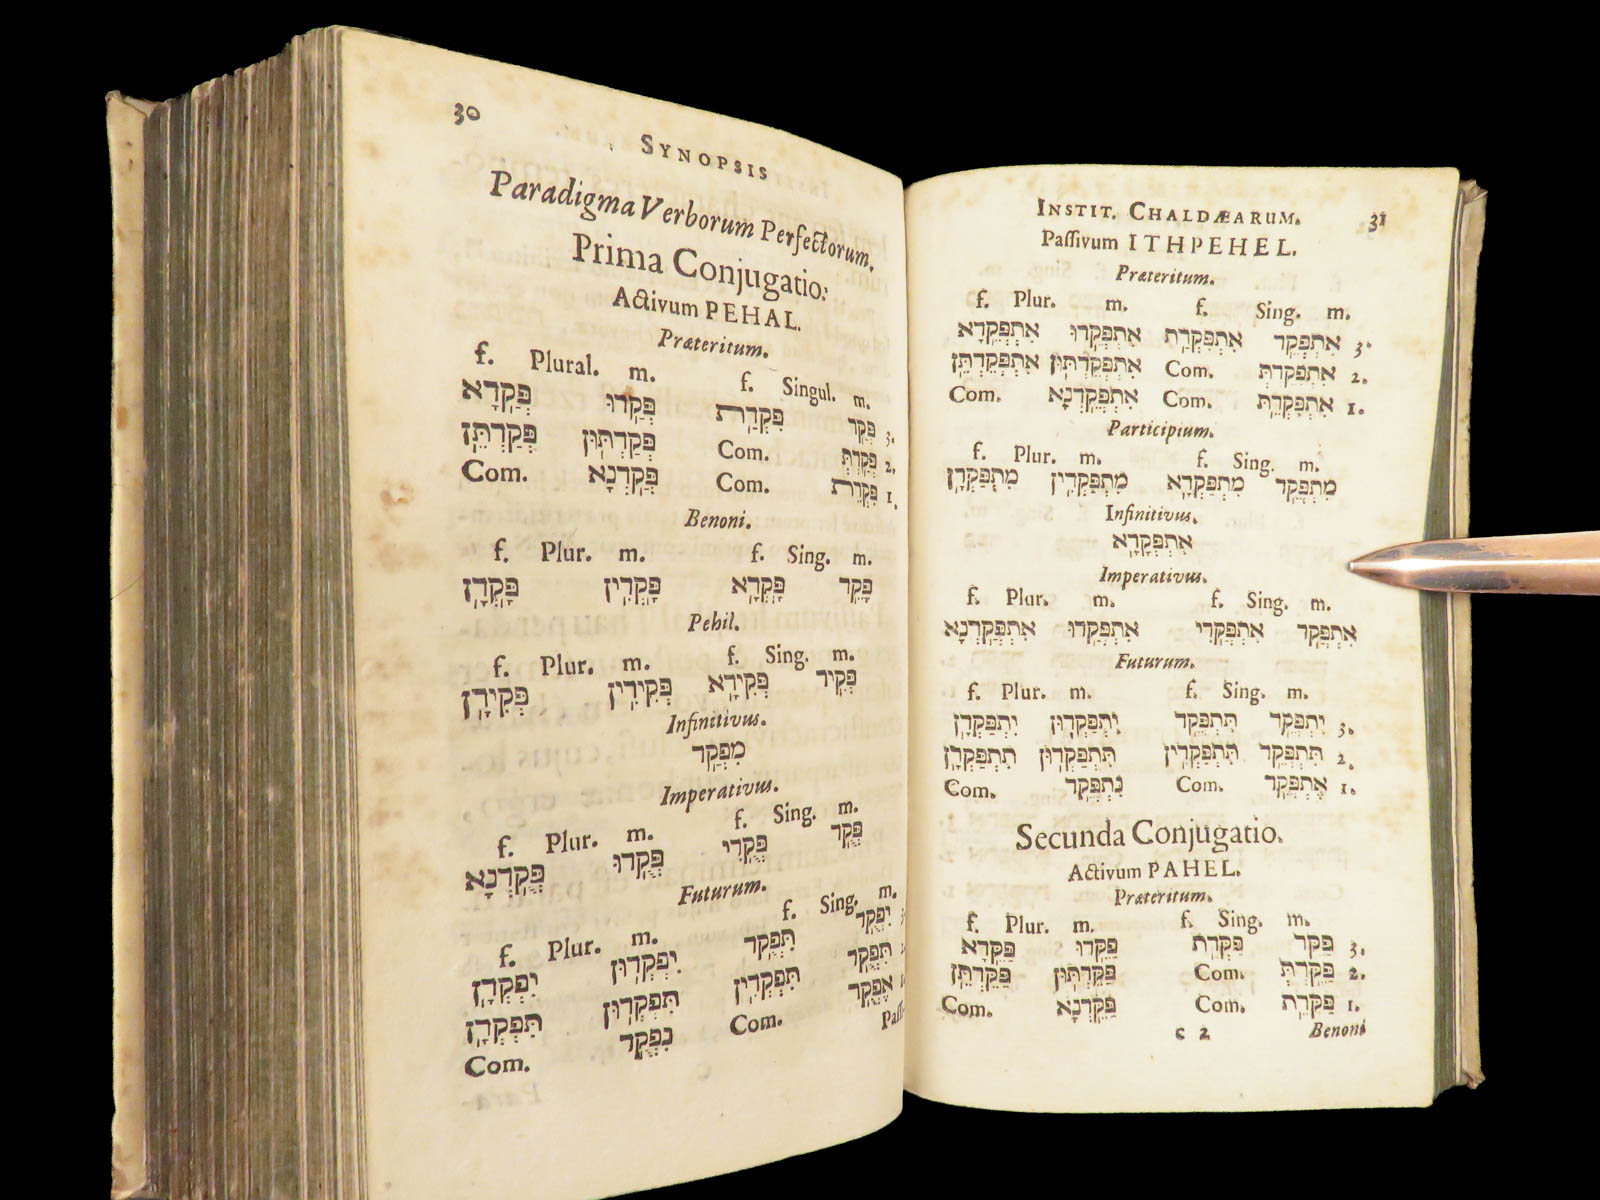 30
SYNOPSIS
Paradigma Verborum Perfectorum.
Prima Conjugatio:
Activum PEHAL.
Præteritum.
f. Plural. m. f. Singul. m.
פְּקַדָא פְּקַדוּ פִּקְדַת פְּקַד 3.
פְּקַדְתֵּן פְּקַדְתּוּן Com. פְּקַדְתְּ 2.
Com. פְּקַדְנָא Com. פִּקְדֵת 1.
Benoni.
f. Plur. m. f. Sing. m.
פָּקְדָן פָּקְדִין פָּקְדָא פָּקֵד
Pehil.
f. Plur. m. f. Sing. m.
פְּקִידָן פְּקִידִין פְּקִידָא פְּקִיד
Infinitivus.
מִפְקַד
Imperativus.
f. Plur. m. f. Sing. m.
פְּקֻדְנָא פְּקֻדוּ פְּקֻדִי פְּקֻד
Futurum.
f. Plur. m. f. Sing. m.
יִפְקְדָן יִפְקְדוּן תִּפְקֻד יִפְקֻד
תִּפְקְדָן תִּפְקְדוּן תִּפְקְדִין תִּפְקֻד
Com. נִפְקֻד Com. אֶפְקֻד
INSTIT. CHALDÆARUM. 31
Paſſivum ITHPEHEL.
Præteritum.
f. Plur. m. f. Sing. m.
אִתְפְּקֵדָא אִתְפְּקֵדוּ אִתְפִּקְדַת אִתְפְּקֵד 3.
אִתְפְּקֵדְתֵּן אִתְפְּקֵדְתּוּן Com. אִתְפְּקֵדְתְּ 2.
Com. אִתְפְּקֵדְנָא Com. אִתְפִּקְדֵת 1.
Participium.
f. Plur. m. f. Sing. m.
מִתְפַּקְדָן מִתְפַּקְדִין מִתְפַּקְדָא מִתְפְּקֵד
Infinitivus.
אִתְפְּקָדָא
Imperativus.
f. Plur. m. f. Sing. m.
אִתְפְּקֵדְנָא אִתְפְּקֵדוּ אִתְפְּקֵדִי אִתְפְּקֵד
Futurum.
f. Plur. m. f. Sing. m.
יִתְפַּקְדָן יִתְפַּקְדוּן תִּתְפְּקֵד יִתְפְּקֵד 3.
תִּתְפַּקְדָן תִּתְפַּקְדוּן תִּתְפַּקְדִין תִּתְפְּקֵד 2.
Com. נִתְפְּקֵד Com. אֶתְפְּקֵד 1.
Secunda Conjugatio.
Activum PAHEL.
Præteritum.
f. Plur. m. f. Sing. m.
פַּקֵּדָא פַּקֵּדוּ פַּקֵּדַת פַּקֵּד 3.
פַּקֵּדְתֵּן פַּקֵּדְתּוּן Com. פַּקֵּדְתְּ 2.
Com. פַּקֵּדְנָא Com. פַּקְּדֵת 1.
c 2 Benoni